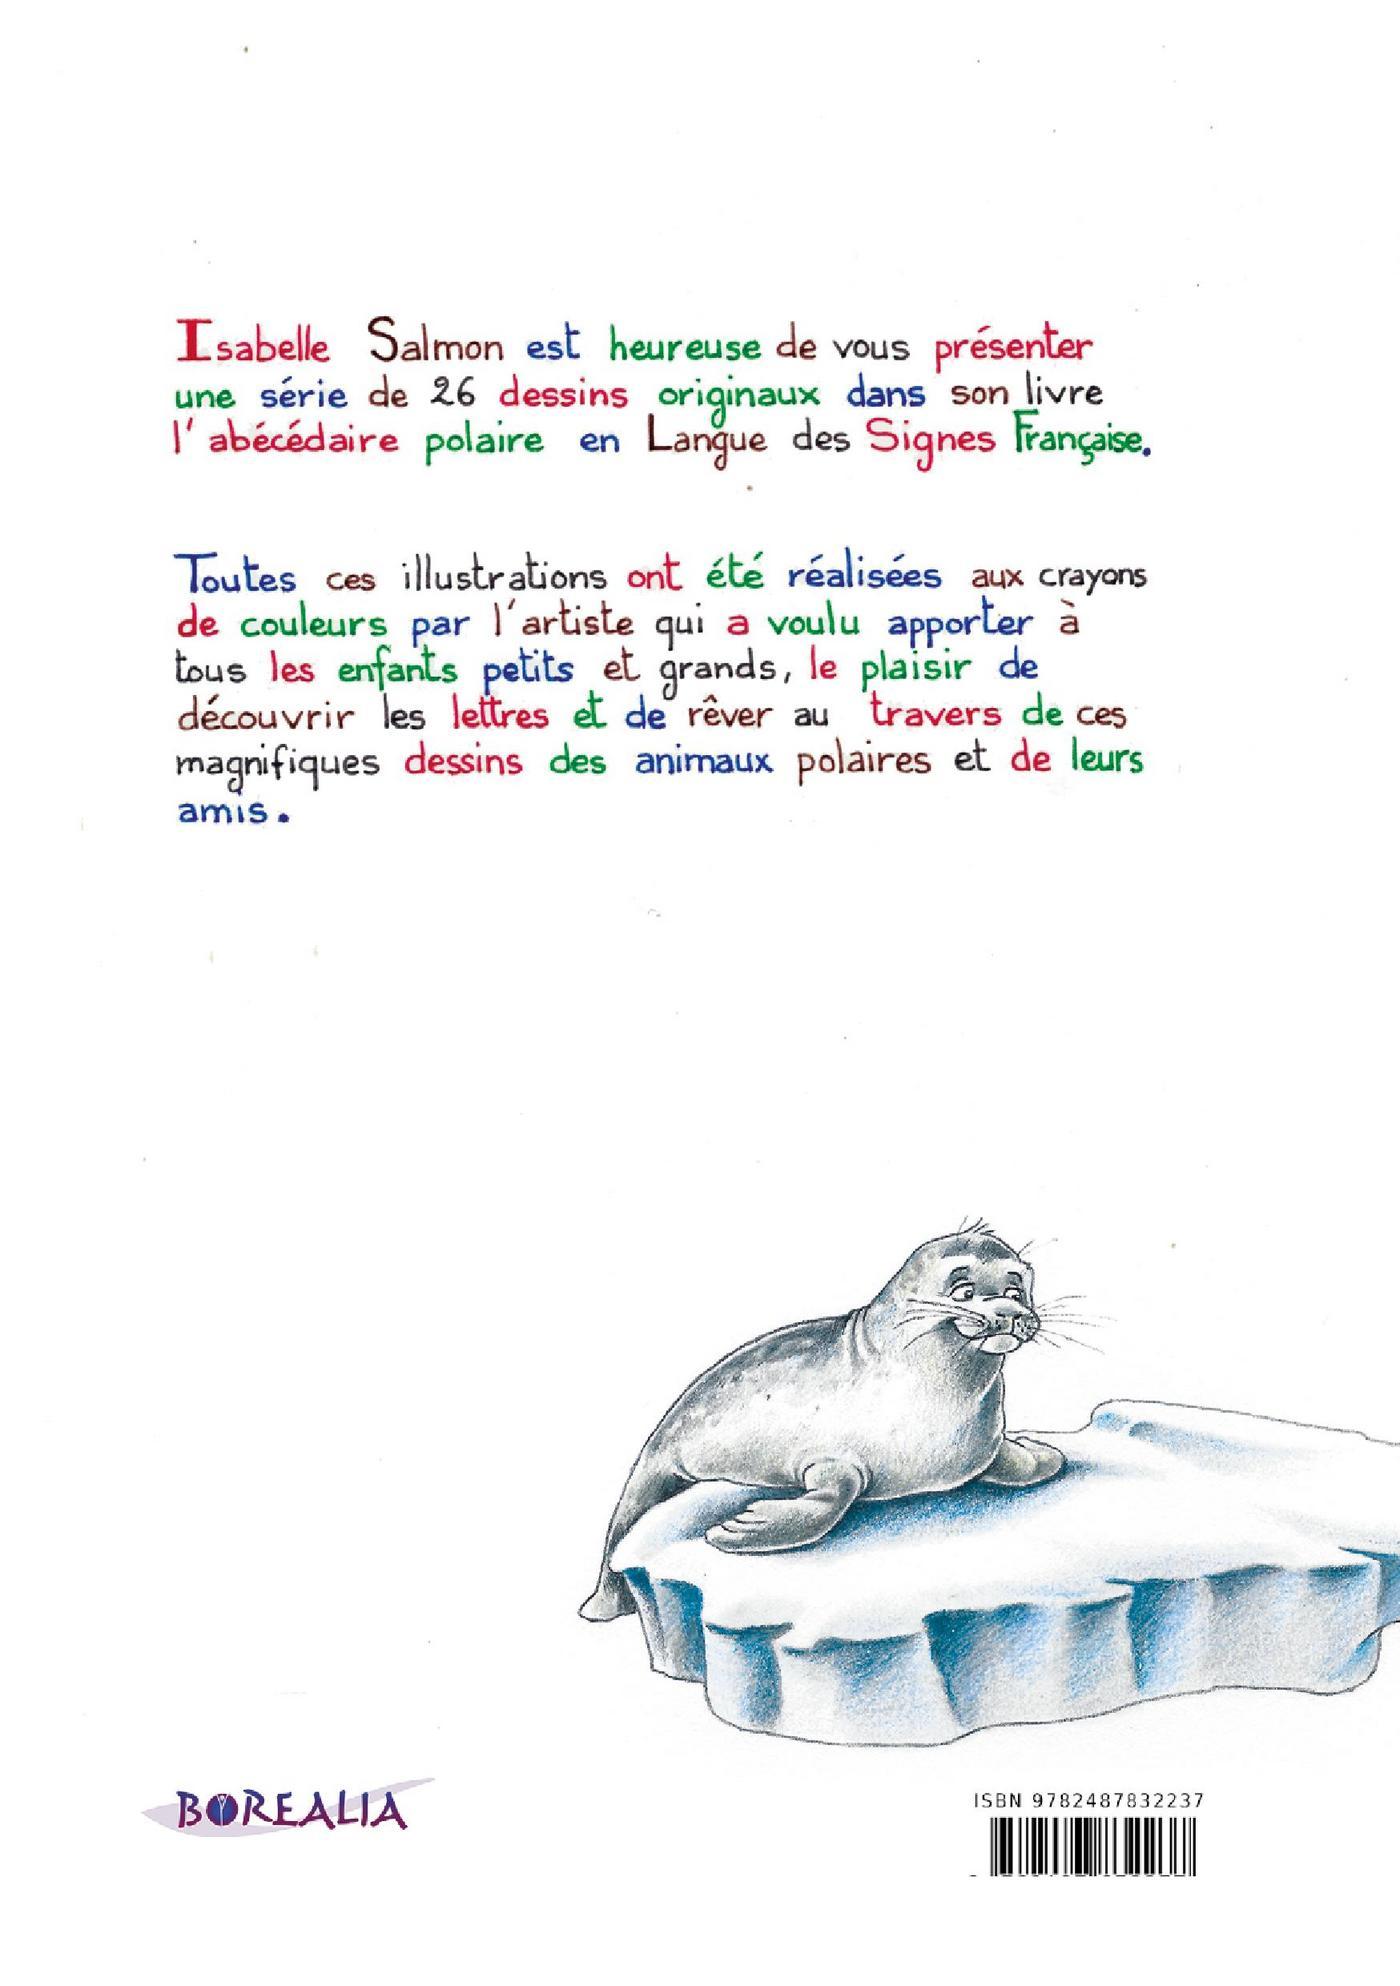 Isabelle Salmon est heureuse de vous présenter
une série de 26 dessins originaux dans son livre
l'abécédaire polaire en Langue des Signes Française.
Toutes ces illustrations ont été réalisées aux crayons
de couleurs par l'artiste qui a voulu apporter à
tous les enfants petits et grands, le plaisir de
découvrir les lettres et de rêver au travers de ces
magnifiques dessins des animaux polaires et de leurs
amis.
BOREALIA
ISBN 9782487832237